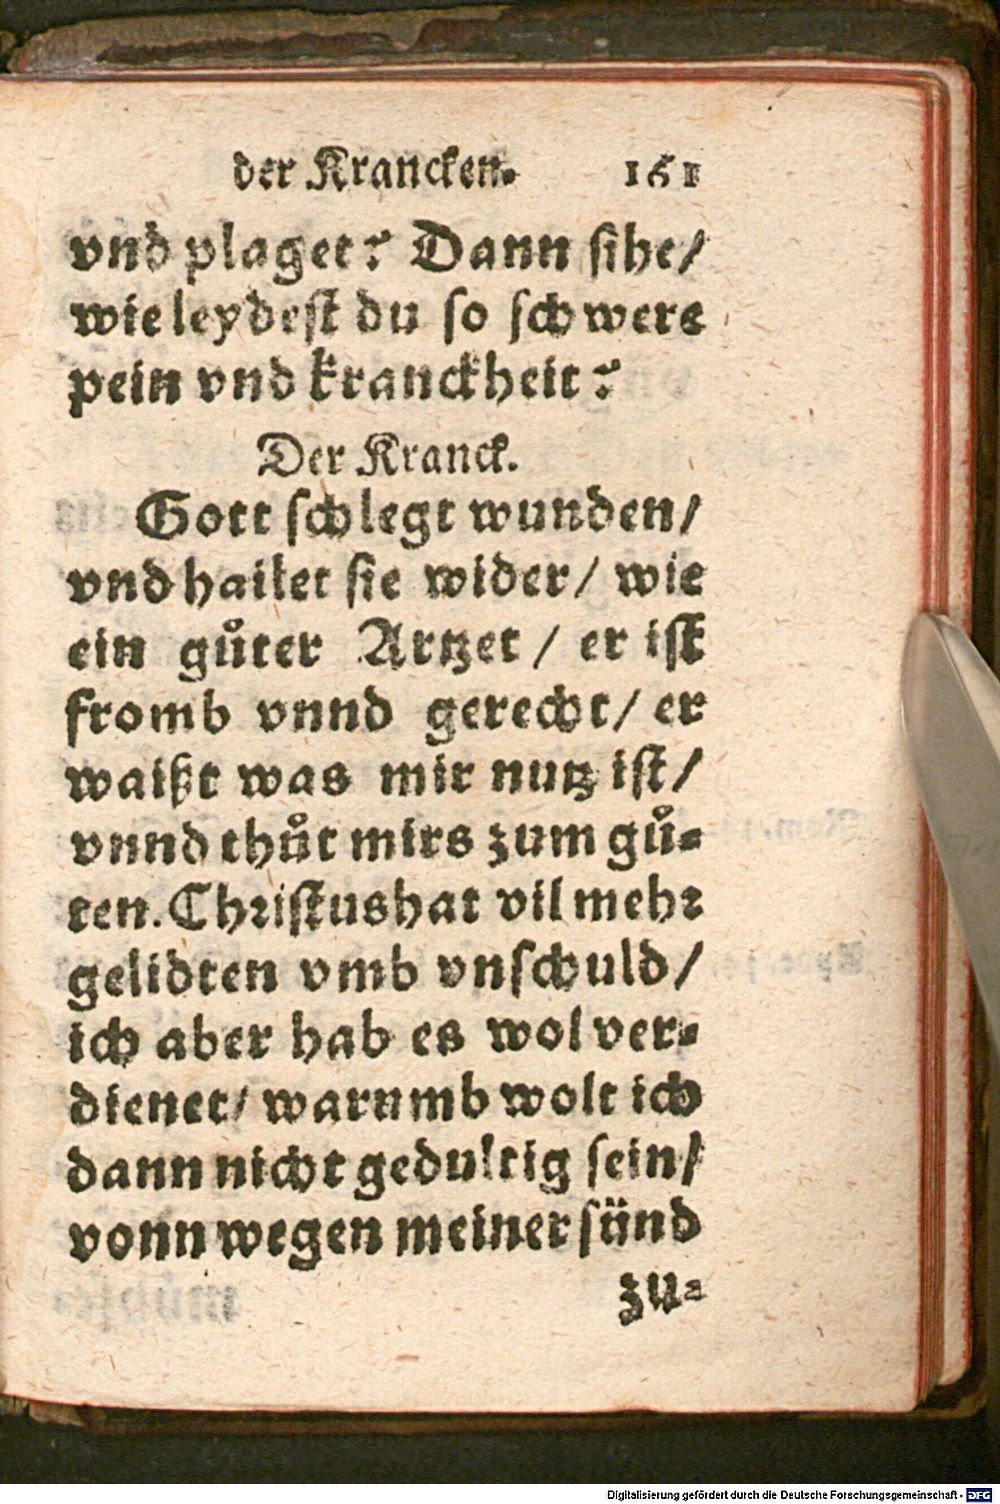 der Krancken. 161
vnd plaget? Dann sihe/
wie leydest du so schwere
pein vnd kranckheit?
Der Kranck.
Gott schlegt wunden/
vnd hailet sie wider/ wie
ein gůter Artzet / er ist
fromb vnnd gerecht/ er
waißt was mir nutz ist/
vnnd thůt mirs zum gů-
ten. Christus hat vil mehr
gelidten vmb vnschuld/
ich aber hab es wol ver-
dienet/ warumb wolt ich
dann nicht gedultig sein/
vonn wegen meiner sünd
zu-
Digitalisierung gefördert durch die Deutsche Forschungsgemeinschaft - DFG